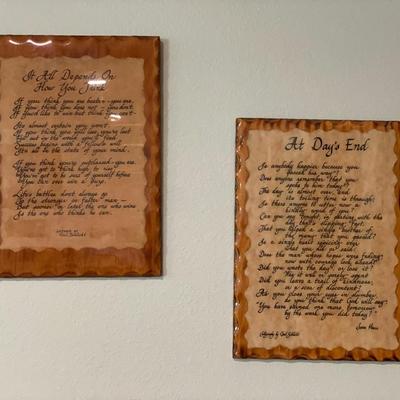 It All Depends On
How You Think
If you think you are beaten - you are
If you think you dare not - you don't
If you'd like to win but think you can't
Its almost certain you won't
If you think you'll lose, you're lost
For out in the world you'll find
Success begins with a fellow's will
It's all in the state of your mind.
If you think your outclassed - you are
You've got to think high to rise
You've got to be sure of yourself before
You can ever win a prize.
Life's battles don't always go
To the stronger or faster man -
But sooner or later the one who wins
Is the one who thinks he can.
At Day's End
Is anybody happier because you
passed his way?
Does anyone remember that you
spoke to him today?
The day is almost over, and
its toiling time is through;
Is there anyone to utter now a
kindly word of you?
Can you say tonight in parting with the
day that's slipping fast,
That you helped a single brother of
the many that you passed?
Is a single heart rejoicing over
what you did or said;
Does the man whose hopes were fading
now with courage look ahead?
Did you waste the day or lose it?
Was it well or sorely spent
Did you leave a trail of kindness,
or a scar of discontent?
As you close your eyes in slumber
do you think that God will say:
You have earned one more tomorrow
by the work you did today?
Calligraphy by